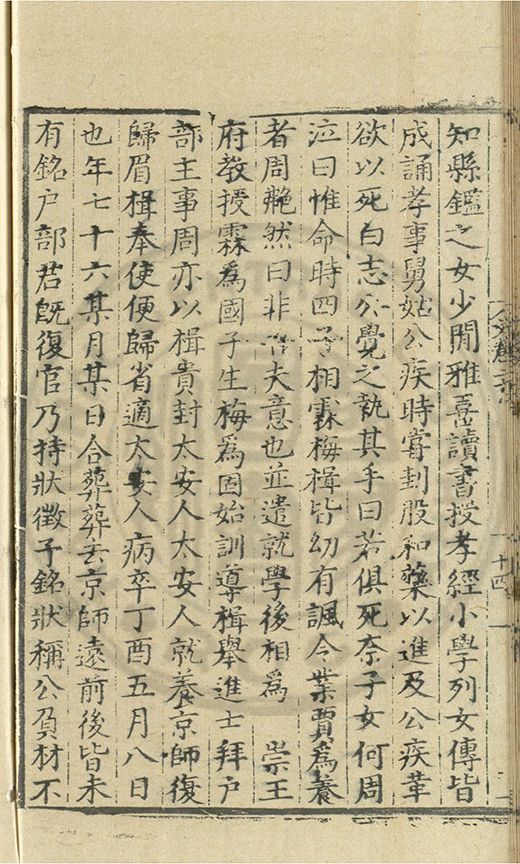 知縣鑑之女少閒雅喜讀書授孝經小學列女傳皆
成誦孝事舅姑公疾時嘗刲股和藥以進及公疾革
欲以死白志公覺之執其手曰若俱死奈子女何周
泣曰惟命時四子相霖梅楫皆幼有諷令業賈爲養
者周艴然曰非吾夫意也並遣就學後相爲　崇王
府教授霖爲國子生梅爲固始訓導楫舉進士拜户
部主事周亦以楫貴封太安人太安人就養京師復
歸眉楫奉使便歸省適太安人病卒丁酉五月八日
也年七十六某月某日合葬葬去京師遠前後皆未
有銘户部君既復官乃持狀徵予銘狀稱公負材不
十四